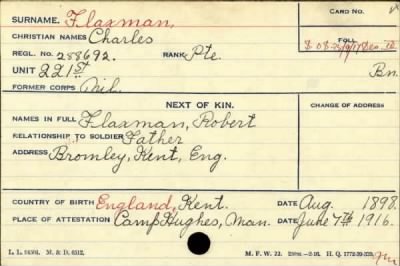 SURNAME. Flaxman, CARD NO.
CHRISTIAN NAMES Charles
FOLL.
REGL. NO. 288692. RANK Pte.
UNIT 221st Bn.
FORMER CORPS Nil.
NEXT OF KIN.
CHANGE OF ADDRESS
NAMES IN FULL Flaxman, Robert
RELATIONSHIP TO SOLDIER Father
ADDRESS Bromley, Kent, Eng.
COUNTRY OF BIRTH England, Kent. DATE Aug. 1898.
PLACE OF ATTESTATION Camp Hughes, Man. DATE June 7th 1916.
M. & D. 6512. M. F. W. 22.